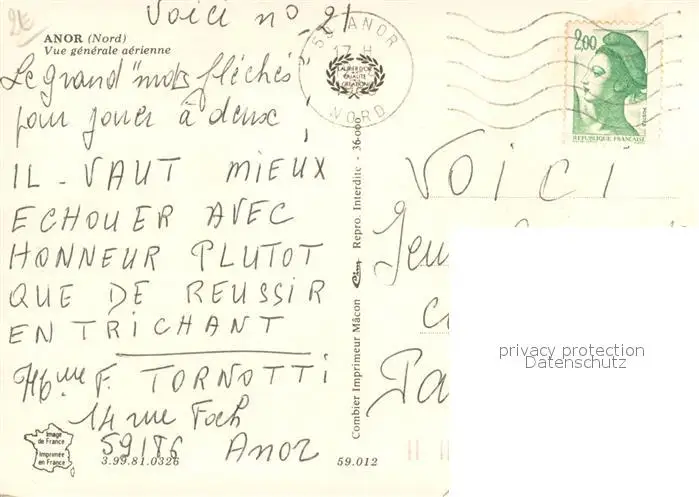 Voici n° 21
ANOR (Nord)
Vue générale aérienne
Le grand "mots fléchés"
pour jouer à deux
IL VAUT MIEUX
ECHOUER AVEC
HONNEUR PLUTOT
QUE DE REUSSIR
EN TRICHANT
F. TORNOTTI
14 rue Foch
59186 Anor
Image
de France
Imprimée
en France
3.99.81.0326
59.012
Combier Imprimeur Mâcon Cim Repro. Interdite - 36-000
59 ANOR
17 H
NORD
2,00
REPUBLIQUE FRANÇAISE
VOICI
Jeu
Pa
privacy protection
Datenschutz